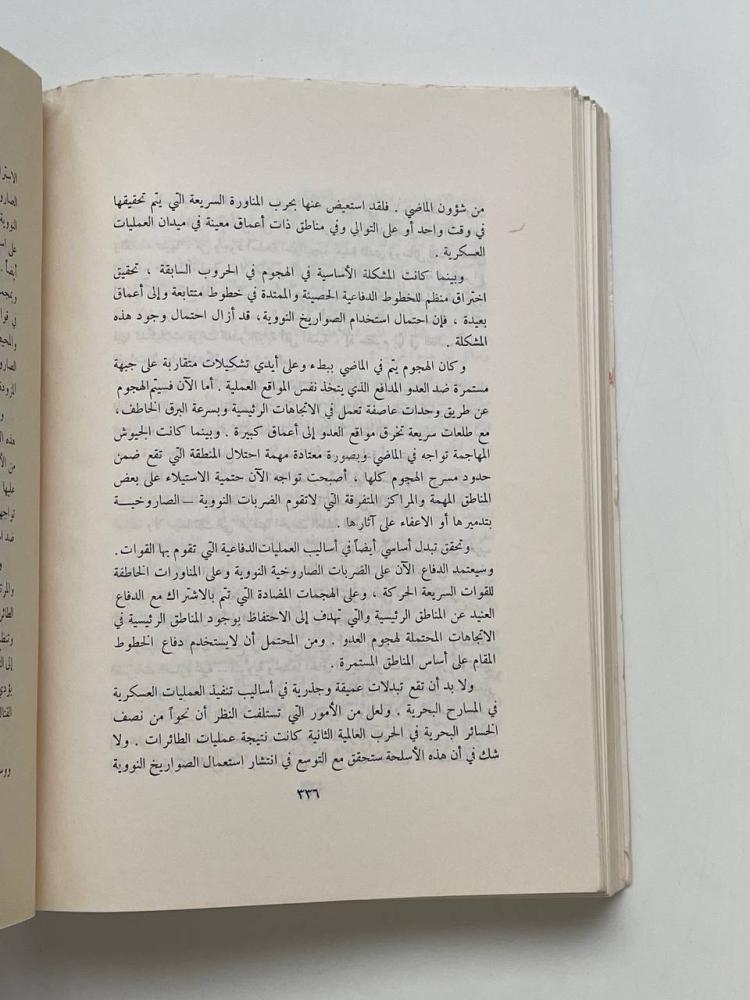 من شؤون الماضي . فلقد استعيض عنها بحرب المناورة السريعة التي يتم تحقيقها
في وقت واحد أو على التوالي وفي مناطق ذات أعماق معينة في ميدان العمليات
العسكرية .
وبينما كانت المشكلة الأساسية في الهجوم في الحروب السابقة ، تحقيق
اختراق منظم للخطوط الدفاعية الحصينة والممتدة في خطوط متتابعة وإلى أعماق
بعيدة ، فإن احتمال استخدام الصواريخ النووية، قد أزال احتمال وجود هذه
المشكلة .
وكان الهجوم يتم في الماضي ببطء وعلى أيدي تشكيلات متقاربة على جبهة
مستمرة ضد العدو المدافع الذي يتخذ نفس المواقع العملية . أما الآن فسيتم الهجوم
عن طريق وحدات عاصفة تعمل في الاتجاهات الرئيسية وبسرعة البرق الخاطف،
مع طلعات سريعة تخرق مواقع العدو إلى أعماق كبيرة . وبينما كانت الجيوش
المهاجمة تواجه في الماضي وبصورة معتادة مهمة احتلال المنطقة التي تقع ضمن
حدود مسرح الهجوم كلها ، أصبحت تواجه الآن حتمية الاستيلاء على بعض
المناطق المهمة والمراكز المتفرقة التي لاتقوم الضربات النووية – الصاروخيـة
بتدميرها أو الاعفاء على آثارها .
وتحقق تبدل أساسي أيضاً في أساليب العمليات الدفاعية التي تقوم بها القوات.
وسيعتمد الدفاع الآن على الضربات الصاروخية النووية وعلى المناورات الخاطفة
للقوات السريعة الحركة ، وعلى الهجمات المضادة التي تتم بالاشتراك مع الدفاع
العنيد عن المناطق الرئيسية والتي تهدف إلى الاحتفاظ بوجود المناطق الرئيسية في
الاتجاهات المحتملة لهجوم العدو . ومن المحتمل أن لايستخدم دفاع الخطوط
المقام على أساس المناطق المستمرة .
ولا بد أن تقع تبدلات عميقة وجذرية في أساليب تنفيذ العمليات العسكرية
في المسارح البحرية . ولعل من الأمور التي تستلفت النظر أن نحواً من نصف
الخسائر البحرية في الحرب العالمية الثانية كانت نتيجة عمليات الطائرات . ولا
شك في أن هذه الأسلحة ستحقق مع التوسع في انتشار استعمال الصواريخ النووية
٣٣٦